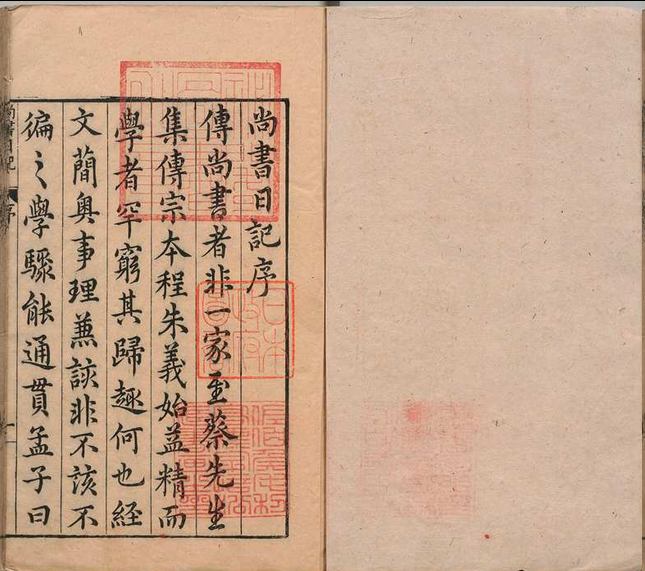 尚書日記序
傳尚書者非一家至蔡先生
集傳宗本程朱義始益精而
學者罕窮其歸趣何也経
文簡奧事理蕪該非不該不
徧之學驟能通貫孟子曰
尚書日記
序